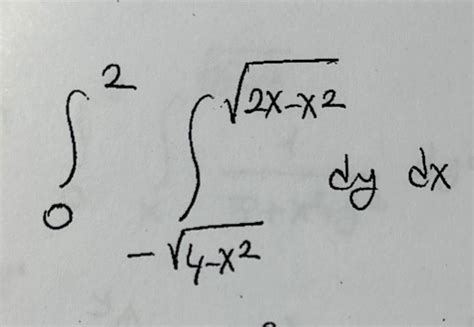 ∫₀² ∫_{-√(4-x²)}^{√(2x-x²)} dy dx